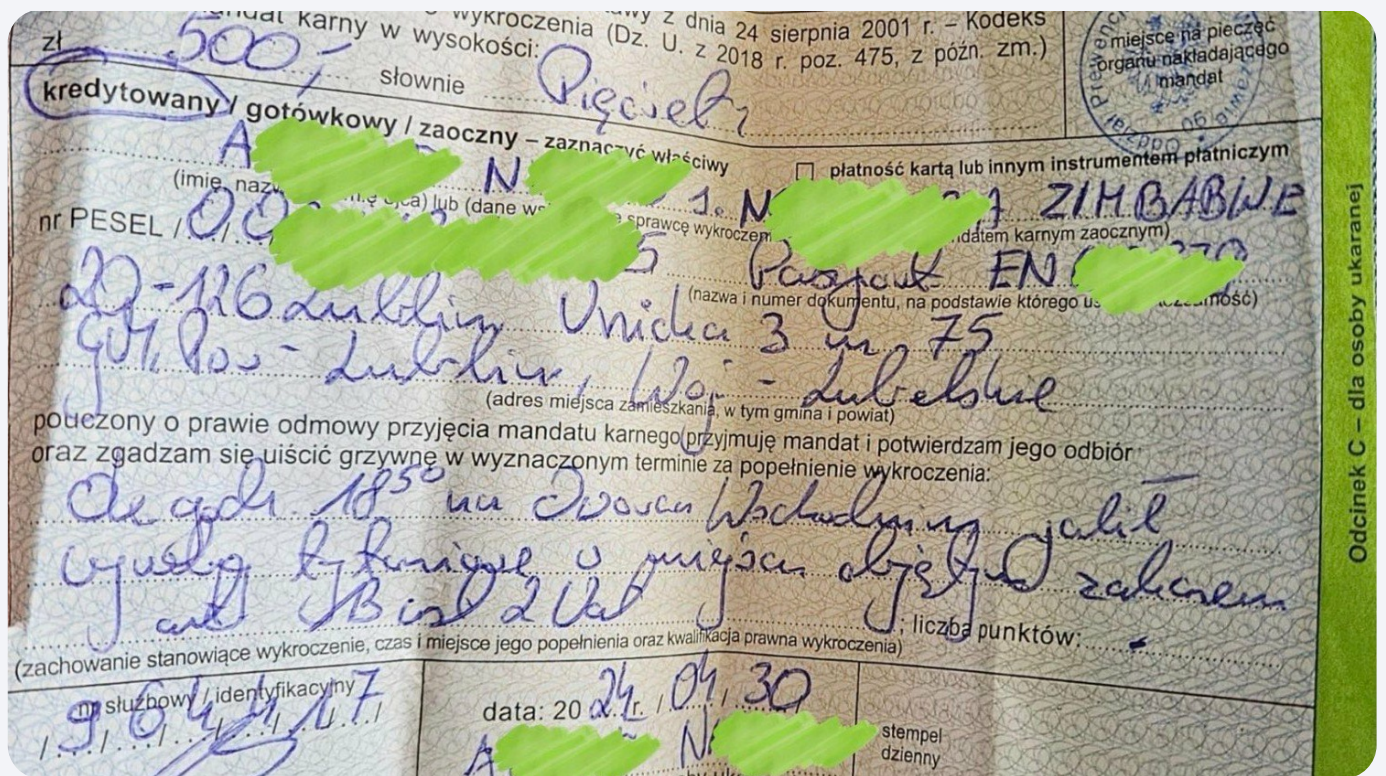 karny w wysokości: wykroczenia (Dz. U. z 2018 r. poz. 475, z późn. zm.)
z dnia 24 sierpnia 2001 r. – Kodeks
zł 500,- słownie Pięćset
miejsce na pieczęć
organu nakładającego
mandat
kredytowany / gotówkowy / zaoczny – zaznaczyć właściwy
płatność kartą lub innym instrumentem płatniczym
A N 1. N ZIMBABWE
(imię, lub (dane sprawcę karnym zaocznym)
nr PESEL / 0 0 5 Paszport EN
(nazwa i numer dokumentu, na podstawie którego
20-126 Lublin Unicka 3 m. 75
gm, Pow - Lublin, Woj - Lubelskie
(adres miejsca zamieszkania, w tym gmina i powiat)
pouczony o prawie odmowy przyjęcia mandatu karnego przyjmuję mandat i potwierdzam jego odbiór
oraz zgadzam się uiścić grzywnę w wyznaczonym terminie za popełnienie wykroczenia:
godz. 18⁵⁰ na Wschodnim palił
tytoniowe w miejscu objętym zakazem
art ; liczba punktów: -
(zachowanie stanowiące wykroczenie, czas i miejsce jego popełnienia oraz kwalifikacja prawna wykroczenia)
nr służbowy / identyfikacyjny
data: 20 24 r. / 04 / 30
A N
stempel
dzienny
Odcinek C – dla osoby ukaranej